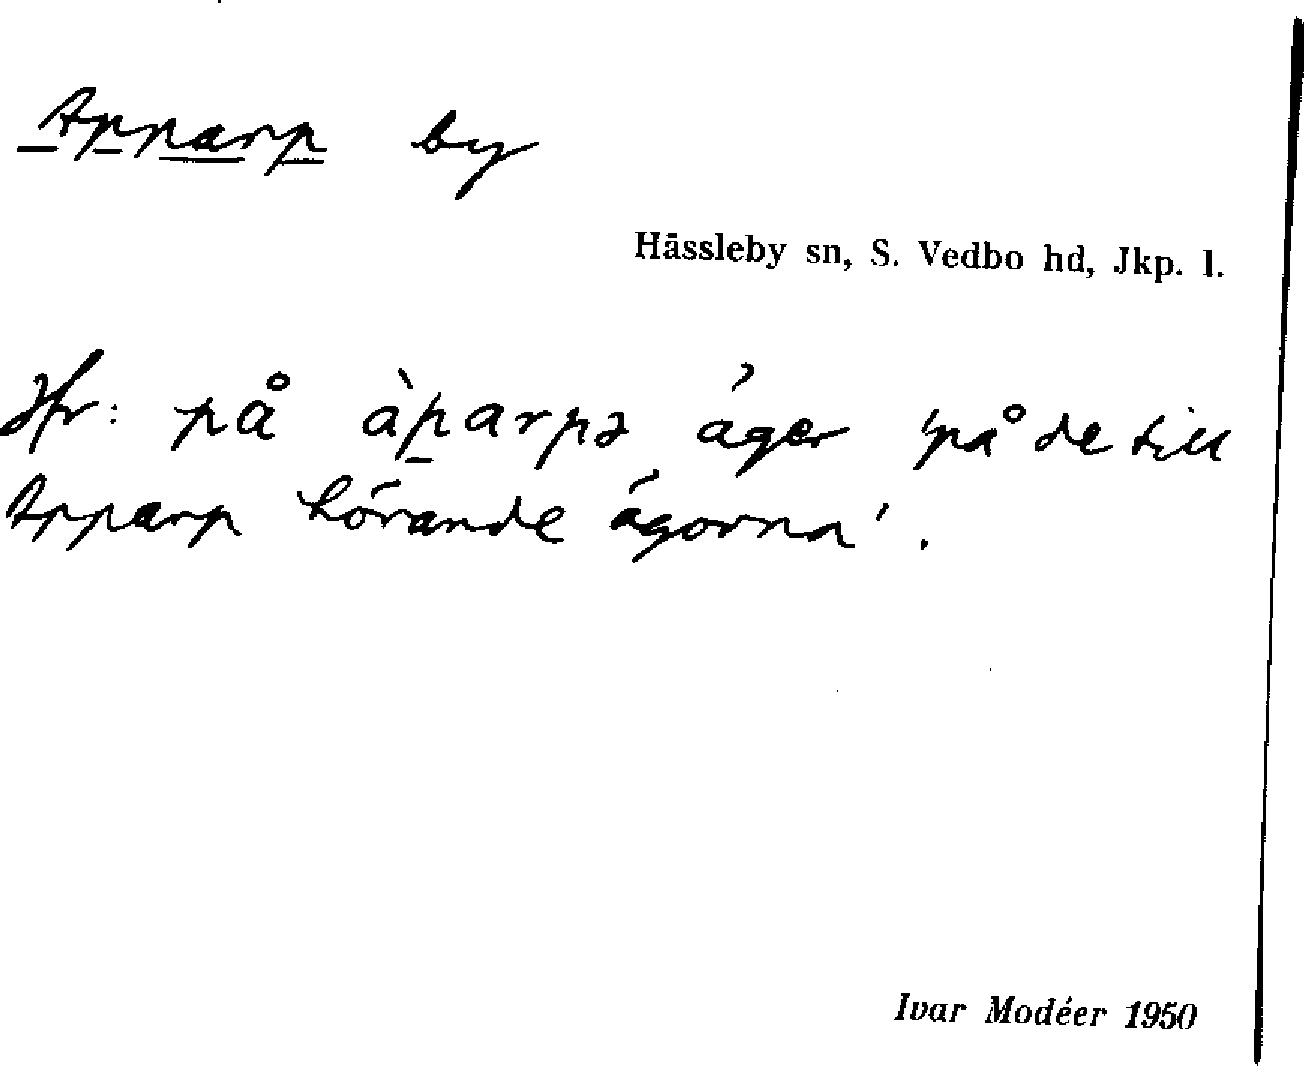 Apparp by
Hässleby sn, S. Vedbo hd, Jkp. l.
Jfr: på àparpə áger 'på de till
Apparp hörande ägorna'.
Ivar Modéer 1950